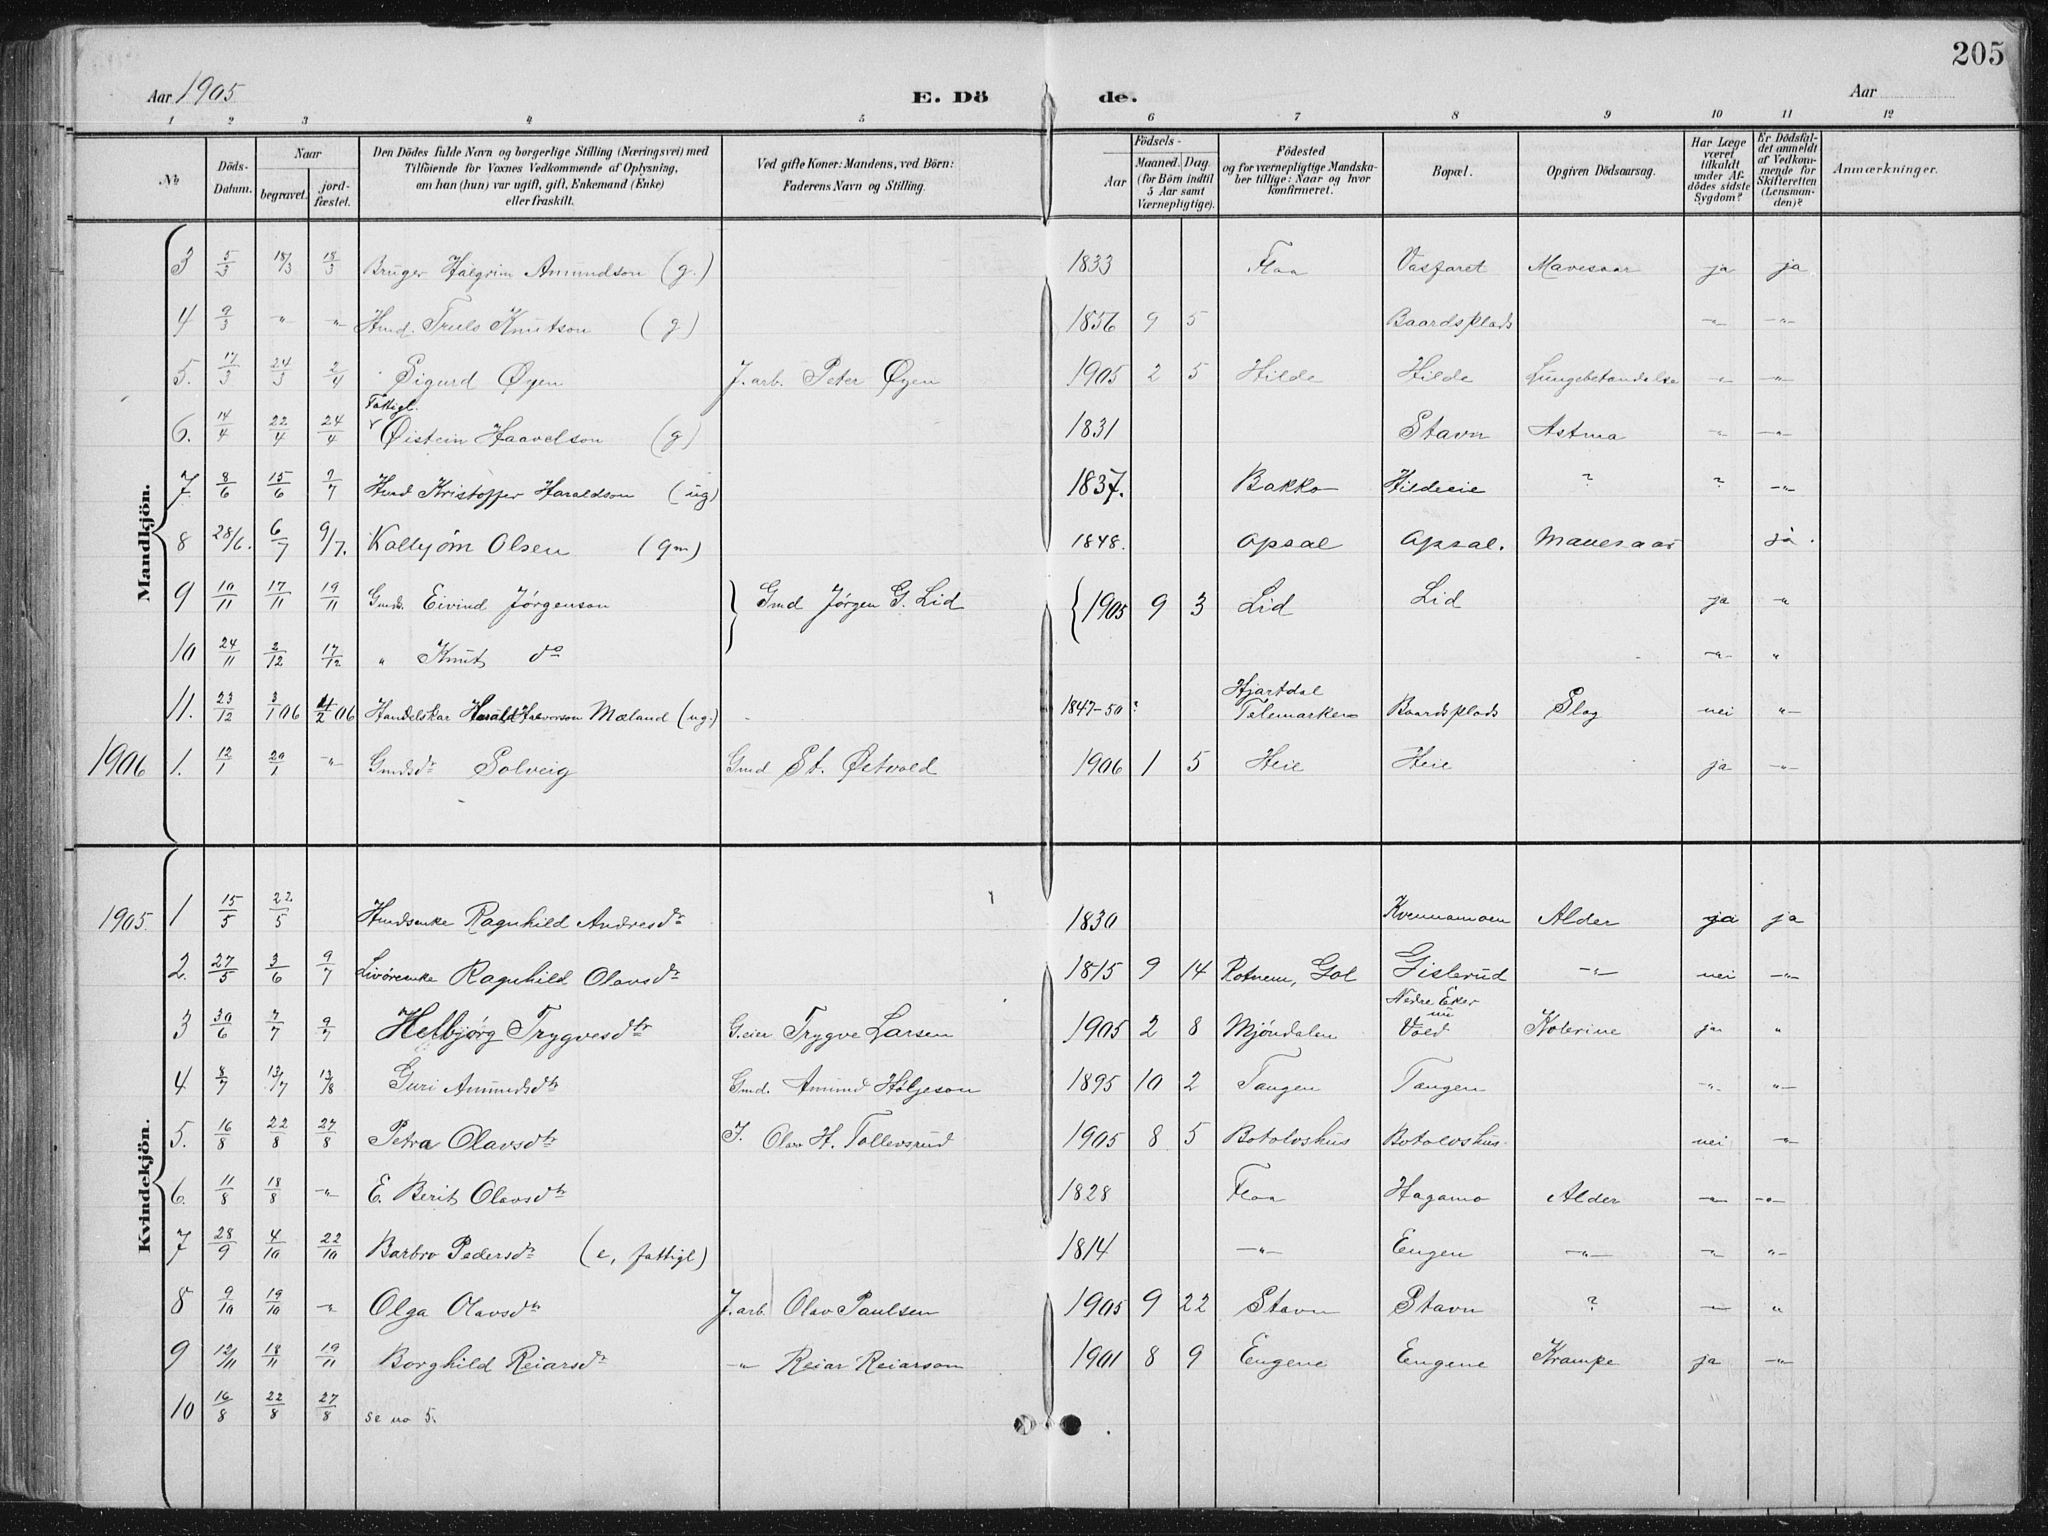 205
Aar 1905 E. Dö de. Aar
1 2 3 4 5 6 7 8 9 10 11 12
№ Döds-Datum. Naar begravet. jordfæstet. Den Dödes fulde Navn og borgerlige Stilling (Næringsvei) med Tilföiende for Voxnes Vedkommende af Oplysning, om han (hun) var ugift, gift, Enkemand (Enke) eller fraskilt. Ved gifte Koner: Mandens, ved Börn: Faderens Navn og Stilling. Födsels- Aar Maaned. Dag. (for Börn indtil 5 Aar samt Værnepligtige). Födested og for værnepligtige Mandskaber tillige: Naar og hvor konfirmeret. Bopæl. Opgiven Dödsaarsag. Har Læge været tilkaldt under Afdödes sidste Sygdom? Er Dödsfaldet anmeldt af Vedkommende for Skifteretten (Lensmanden)? Anmærkninger.
Mandkjön.
3 5/3 18/3 18/3 Bruger Halgrim Amundson (g.) 1833 Flaa Vasfaret Mavesaar ja ja
4 9/3 " " Husd. Truls Knutson (g) 1856 9 5 Baardsplads -"- -"-
5. 17/3 24/3 2/4 Sigurd Øyen J. arb. Peter Øyen 1905 2 5 Hilde Hilde Lungebetændelse -"- -"-
Fattigl.
6. 14/4 22/4 24/4 Øistein Haavelson (g) 1831 Stavn Astma -"- -"-
7. 8/6 15/6 9/7 Husd Kristoffer Haraldson (ug) 1837. Bakko Hildeeie ? ? -"-
8 28/6. 6/7 9/7. Kolbjørn Olsen (gm) 1848. Opsal Opsal. Mavesaar ja.
9 10/11 17/11 19/11 Gmds. Eivind Jørgenson } Gmd Jørgen G. Lid { 1905 9 3 Lid Lid ja "
10 24/11 2/12 17/12 " Knut do -"- "
Hjartdal
11. 23/12 3/1 06 4/2 06 Handelskar Harald Halvorson Mæland (ug.) 1847-50? Telemarken Baardsplads Slag nei -"-
1906 1. 12/1 20/1 -"- Gmdsdr Solveig Gmd St. Østvold 1906 1 5 Heie Heie ja -"-
Kvindekjön.
1905. 1 15/5 22/5 Husdsenke Ragnhild Andresdr 1830 Kvennamoen Alder ja ja
2. 27/5 3/6 9/7 Livørenke Ragnhild Olavsdr 1815 9 14 Rotneim, Gol Gislerud -"- nei -"-
Nedre Eker
nu
3 30/6 7/7 9/7 Helbjørg Trygvesdtr G.eier Trygve Larsen 1905 2 8 Mjøndalen Vold Kolerine ja "
4 8/7 13/7 13/8 Guri Amundsdtr Gmd. Amund Holjeson 1895 10 2 Tangen Tangen -"- -"-
5. 16/8 22/8 27/8 Petra Olavsdtr J. Olav H. Tollevsrud 1905 8 5 Botolvshus Botolvshus nei -"-
6. 11/8 18/8 -"- E. Berit Olavsdtr 1828 Flaa Hagamo Alder -"- -"-
7 28/9 4/10 22/10 Barbro Pedersdr (e, fattigl) 1814 -"- Engen -"- -"- -"-
8 9/10 19/10 " Olga Olavsdtr J. arb. Olav Paulsen 1905 9 22 Stavn Stavn ? -"- "
9 12/11 18/11 19/11 Borghild Reiarsdr -"- Reiar Reiarson 1901 8 9 Eugene Eugene Krampe ja -"-
10 16/8 22/8 27/8 se no 5.